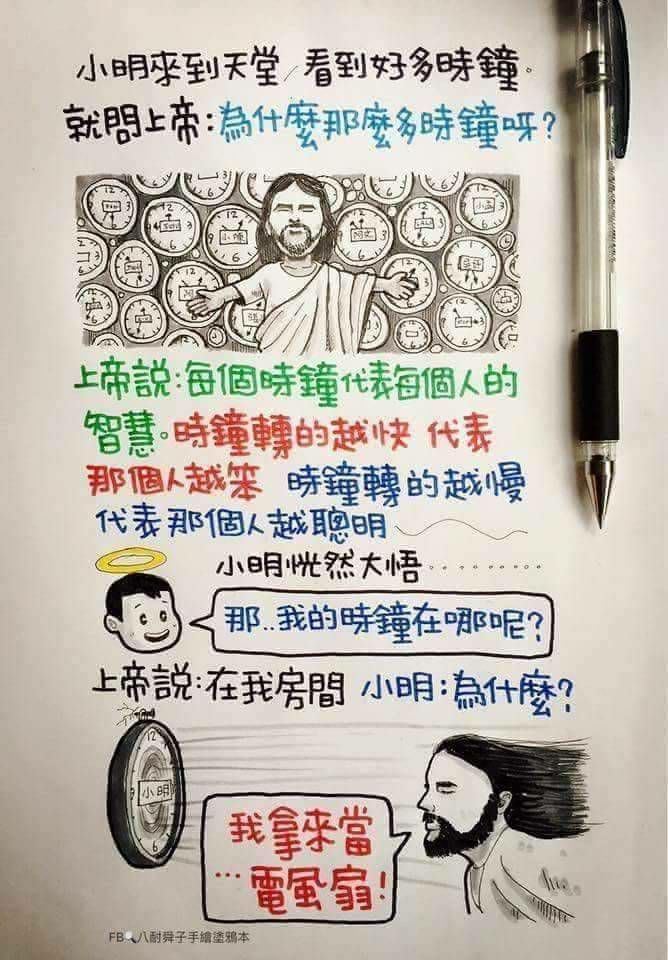 小明來到天堂，看到好多時鐘。
就問上帝：為什麼那麼多時鐘呀？
12
3
6
小陳
阿文
小孟
上帝說：每個時鐘代表每個人的
智慧。時鐘轉的越快 代表
那個人越笨 時鐘轉的越慢
代表那個人越聰明
小明恍然大悟........
那..我的時鐘在哪呢？
上帝說：在我房間 小明：為什麼？
12
小明
6
我拿來當
...電風扇！
FB 八耐舜子手繪塗鴉本